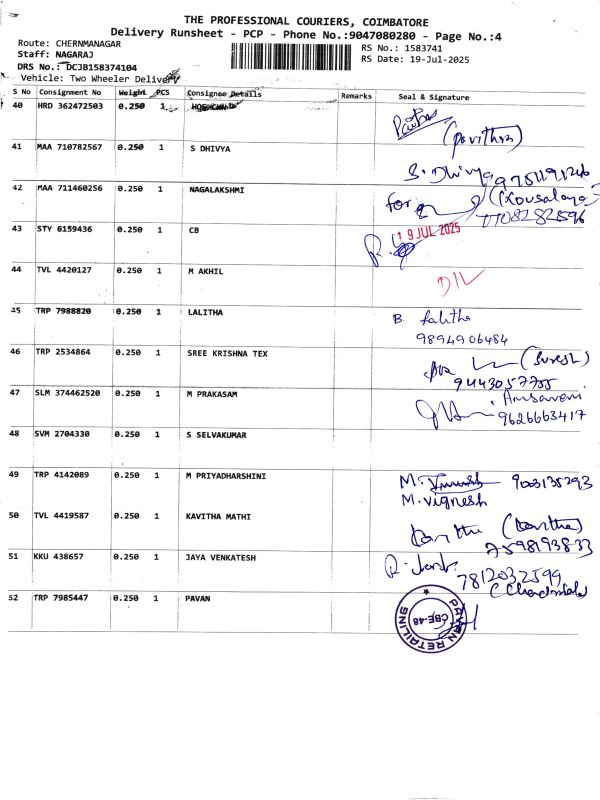 THE PROFESSIONAL COURIERS, COIMBATORE
Delivery Runsheet - PCP - Phone No.:9047080280 - Page No.:4
Route: CHERNMANAGAR
Staff: NAGARAJ
DRS No.: DCJB158374104
Vehicle: Two Wheeler Delivery
RS No.: 1583741
RS Date: 19-Jul-2025
S No Consignment No Weight PCS Consignee Details Remarks Seal & Signature
40 HRD 362472503 0.250 1
(pavithra)
41 MAA 710782567 0.250 1 S DHIVYA
S. Dhivya
42 MAA 711460256 0.250 1 NAGALAKSHMI
for (Kousalaya)
7708282596
43 STY 6159436 0.250 1 CB
19 JUL 2025
44 TVL 4420127 0.250 1 M AKHIL
DIL
45 TRP 7988820 0.250 1 LALITHA
B lalitha
9894906484
46 TRP 2534864 0.250 1 SREE KRISHNA TEX
(Suresh)
9443057755
47 SLM 374462520 0.250 1 M PRAKASAM
9626663417
48 SVM 2704330 0.250 1 S SELVAKUMAR
49 TRP 4142089 0.250 1 M PRIYADHARSHINI
M. 9003135293
M. Vignesh
50 TVL 4419587 0.250 1 KAVITHA MATHI
(kavitha)
7598193833
51 KKU 438657 0.250 1 JAYA VENKATESH
7812032599
52 TRP 7985447 0.250 1 PAVAN
PAVAN RETAILING
CBE-48